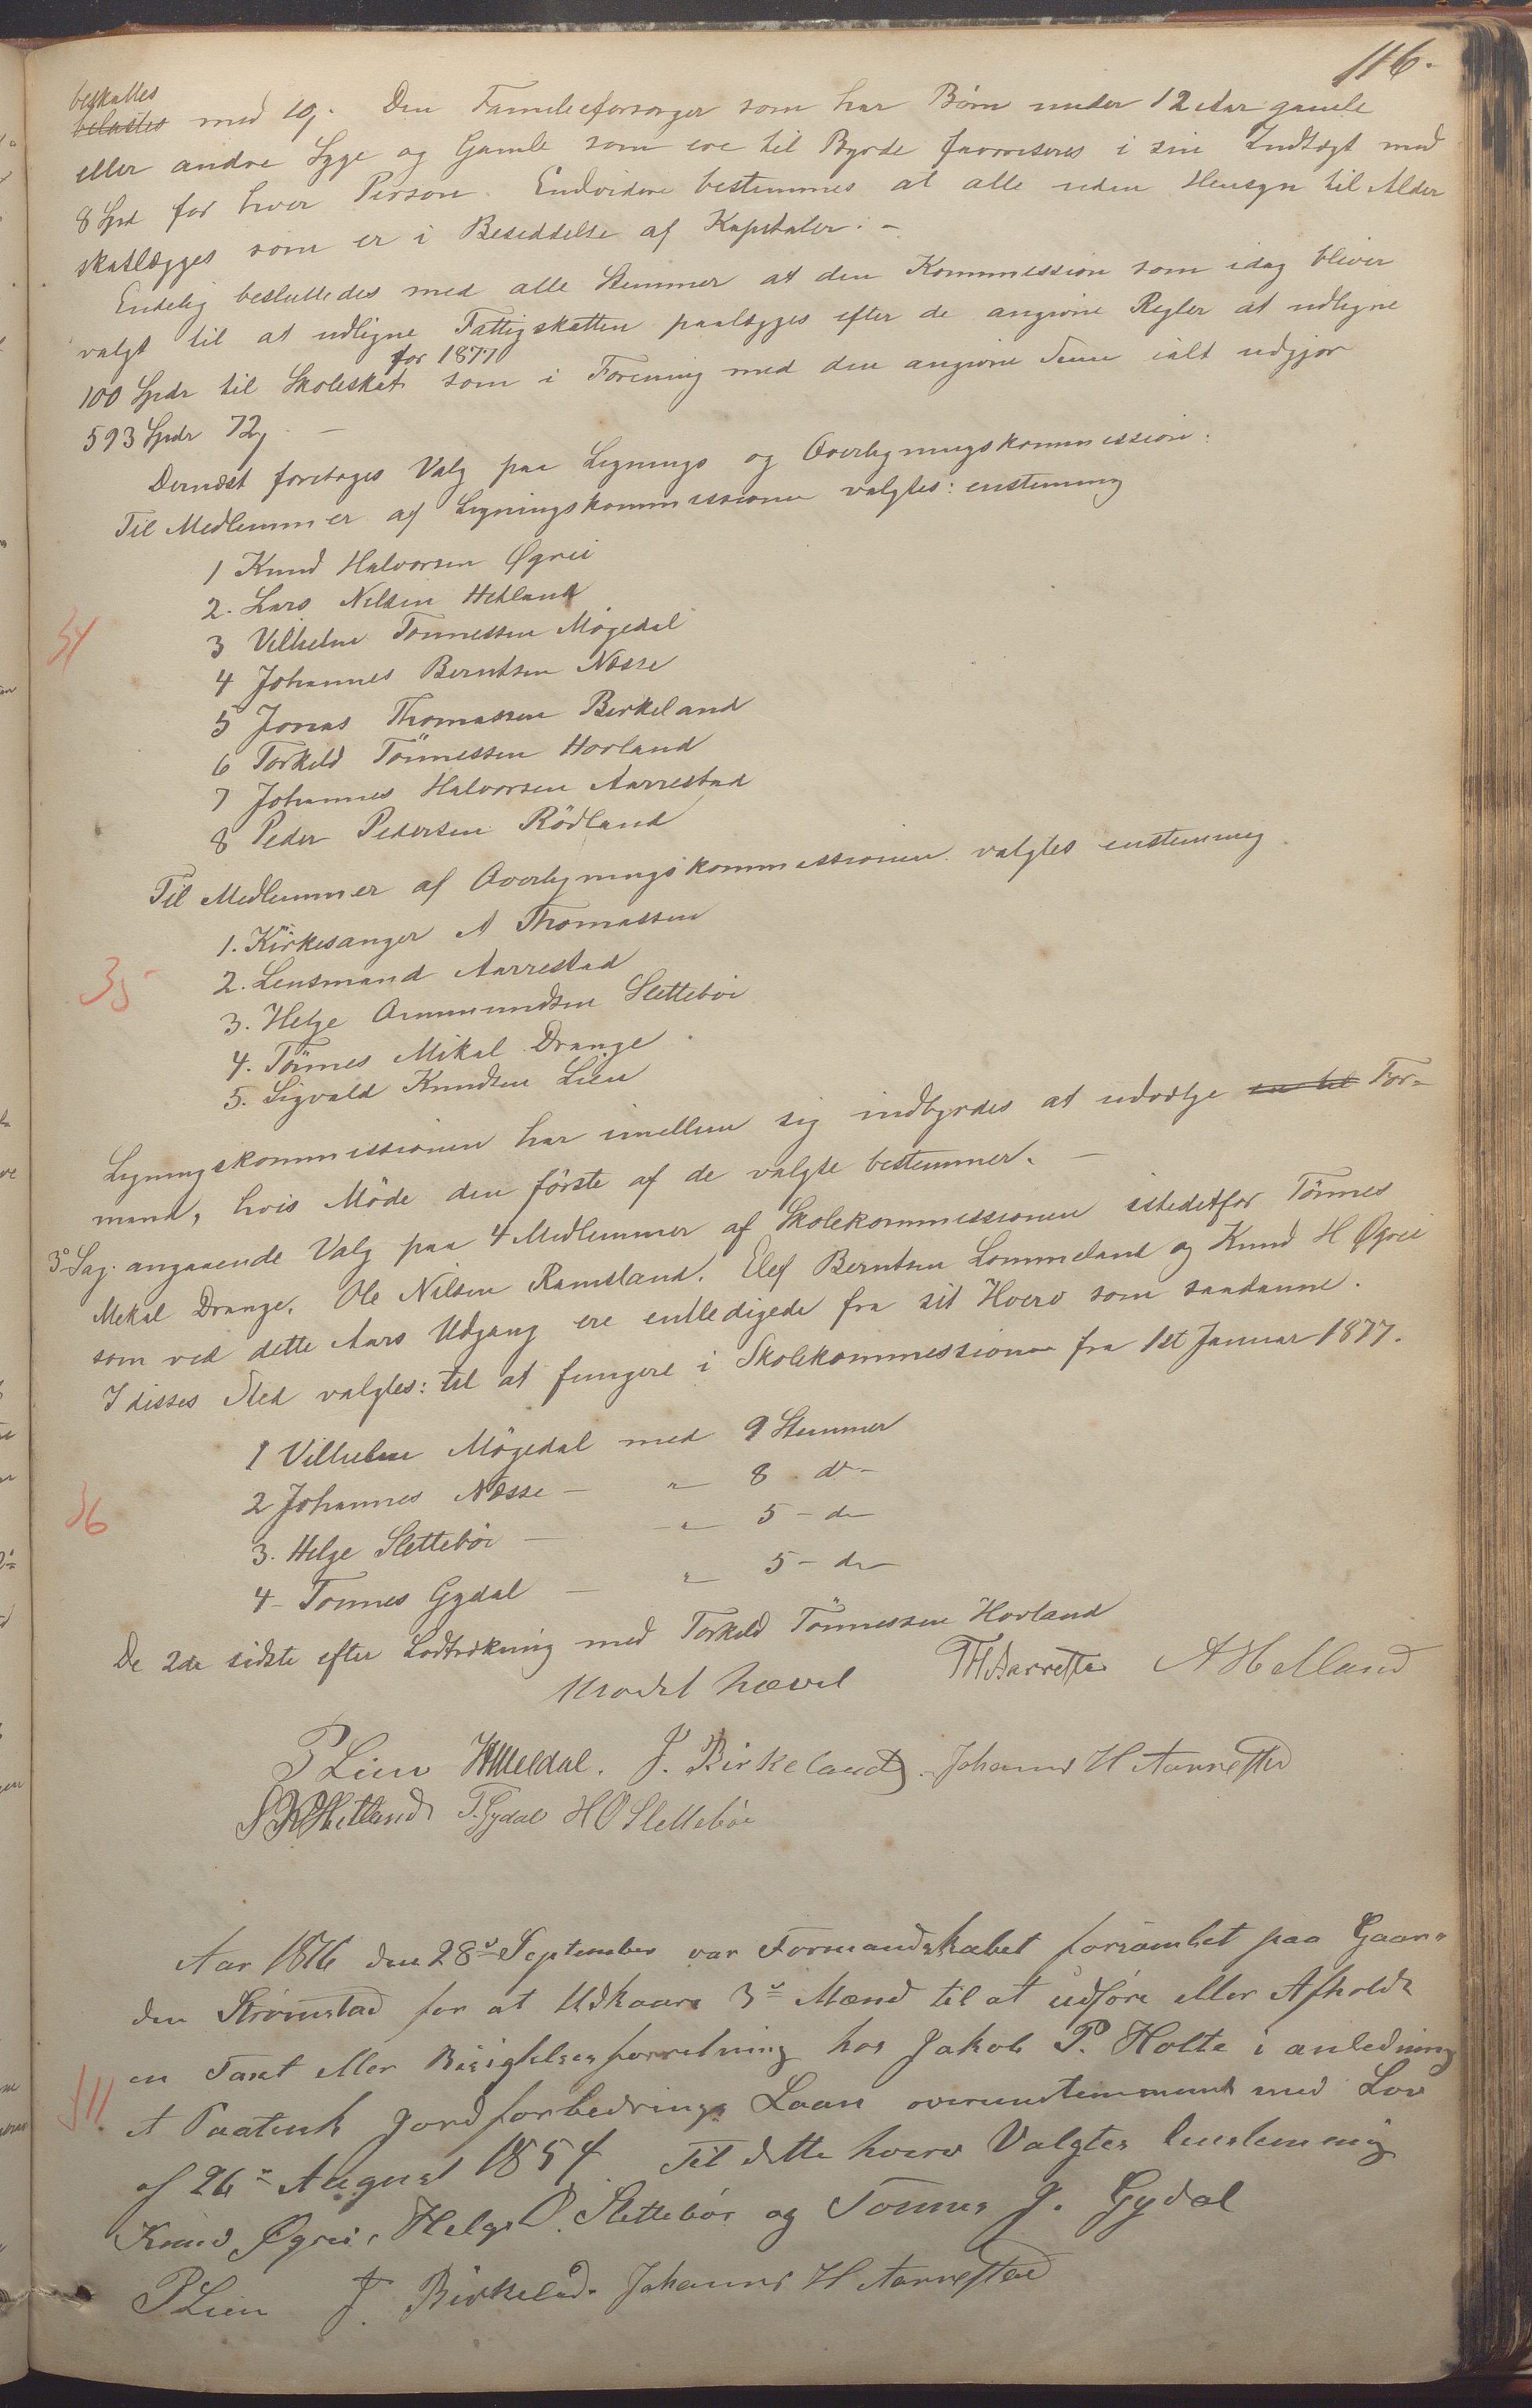 116.
beskattes
belastes med 10ß. Den Familieforsørger som har Børn under 12 Aar gamle
eller andre Syge og Gamle som ere til Byrde favoriseres i sin Indtægt med
8 Spd for hver Person. Endvidere bestemmes at alle uden Hensyn til Alder
skatlægges som er i Besiddelse af Kapitaler. –
Endelig besluttedes med alle Stemmer at den Kommission som idag bliver
valgt til at udligne Fattigskatten paalægges efter de angivne Regler at udligne
for 1877
100 Spdr til Skoleskat som i Forening med den angivne Sum ialt udgjør
593 Spdr 72ß –
Dernæst foretoges Valg paa Lignings og Overligningskommission:
Til Medlemmer af Ligningskommissionen valgtes: enstemmig
1 Knud Halvorsen Øgrei
2. Lars Nilsen Hetland
34
3 Vilhelm Tønnessen Møgedal
4 Johannes Berntsen Nesse
5 Jonas Thomassen Birkeland
6 Torkild Tönnessen Hovland
7 Johannes Halvorsen Aarrestad
8 Peder Pedersen Rödland
Til Medlemmer af Overligningskommissionen valgtes enstemmig.
1. Kirkesanger A Thomassen
35
2. Lensmand Aarrestad
3. Helge Ommundsen Slettebøe
4. Tönnes Mikal Drange.
5. Sigvald Knudsen Lien
Ligningskommissionen har imellem sig indbyrdes at udvælge en til For-
mand, hvis Möde den förste af de valgte bestemmer. –
3o Sag. angaaende Valg paa 4 Medlemmer af Skolekommissionen istedetfor Tönnes
Mekal Drange. Ole Nilsen Ramsland. Elef Berntsen Lommeland og Knud H Øgrei
som ved dette Aars Udgang ere entledigede fra sit Hverv som saadanne.
I disses Sted valgtes: til at fungere i Skolekommissionen fra 1st Januar 1877.
1 Vilhelm Mögedal med 9 Stemmer
2 Johannes Nesse – " 8 do –
36
3. Helge Slettebøe – " 5 – do
4 – Tonnes Gydal – " 5 – do
De 2de sidste efter Lodtrækning med Torkild Tönnessen Hovland
Mødet hævet TH Aarrestad A Helland
P Lien J. Birkeland. Johannes H Aarrestad
Hetland T. Gydal H O Slettebøe
Aar 1876 den 28de September var Formandskabet forsamlet paa Gaar-
den Strömstad for at Udkaare 3de Mænd til at udføre eller Afholde
en Taxt eller Besigtelsesforretning hos Jakob P. Holte i anledning
J 11.
et Paatenkt Jordforbedrings Laan overenstemmende med Lov
af 26de August 1854. Til dette hverv Valgtes Enstemmig
Knud Øgrei, Helge O. Slettebøe og Tonnes J. Gydal
P Lien J. Birkeland. Johannes H Aarrestad